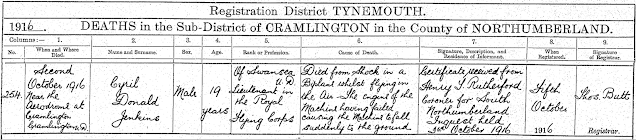 Registration District TYNEMOUTH.
1916. DEATHS in the Sub-District of CRAMLINGTON in the County of NORTHUMBERLAND.
Columns:— 1. 2. 3. 4. 5. 6. 7. 8. 9.
No. When and Where Died. Name and Surname. Sex. Age. Rank or Profession. Cause of Death. Signature, Description, and Residence of Informant. When Registered. Signature of Registrar.
254.
Second
October 1916
Near the
Aerodrome at
Cramlington
Cramlington
Cyril
Donald
Jenkins
Male
19
years
Of Swansea
Lieutenant in
the Royal
Flying Corps
Died from Shock in a
Biplane whilst flying in
the Air – The engine of the
Machine having failed
causing the Machine to fall
suddenly to the ground
Certificate received from
Henry T. Rutherford
Coroner for South
Northumberland
Inquest held
3rd October 1916
Fifth
October
1916
Thos. Butt
Registrar.